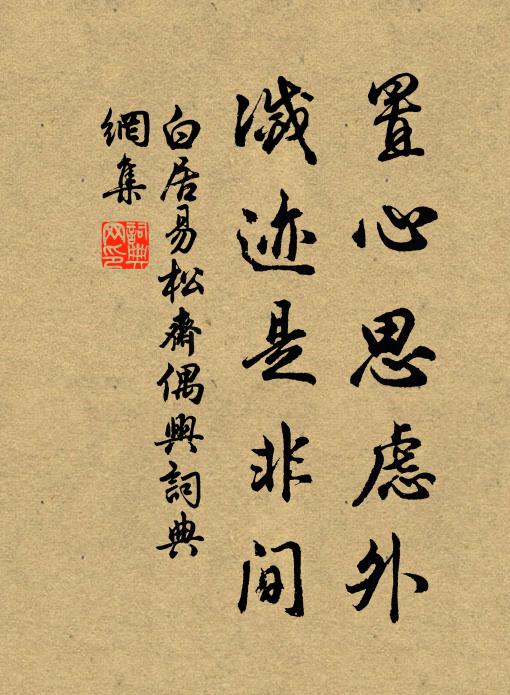 置心思慮外
滅迹是非间
白居易松齋偶興詞典
網集
詞典
网印